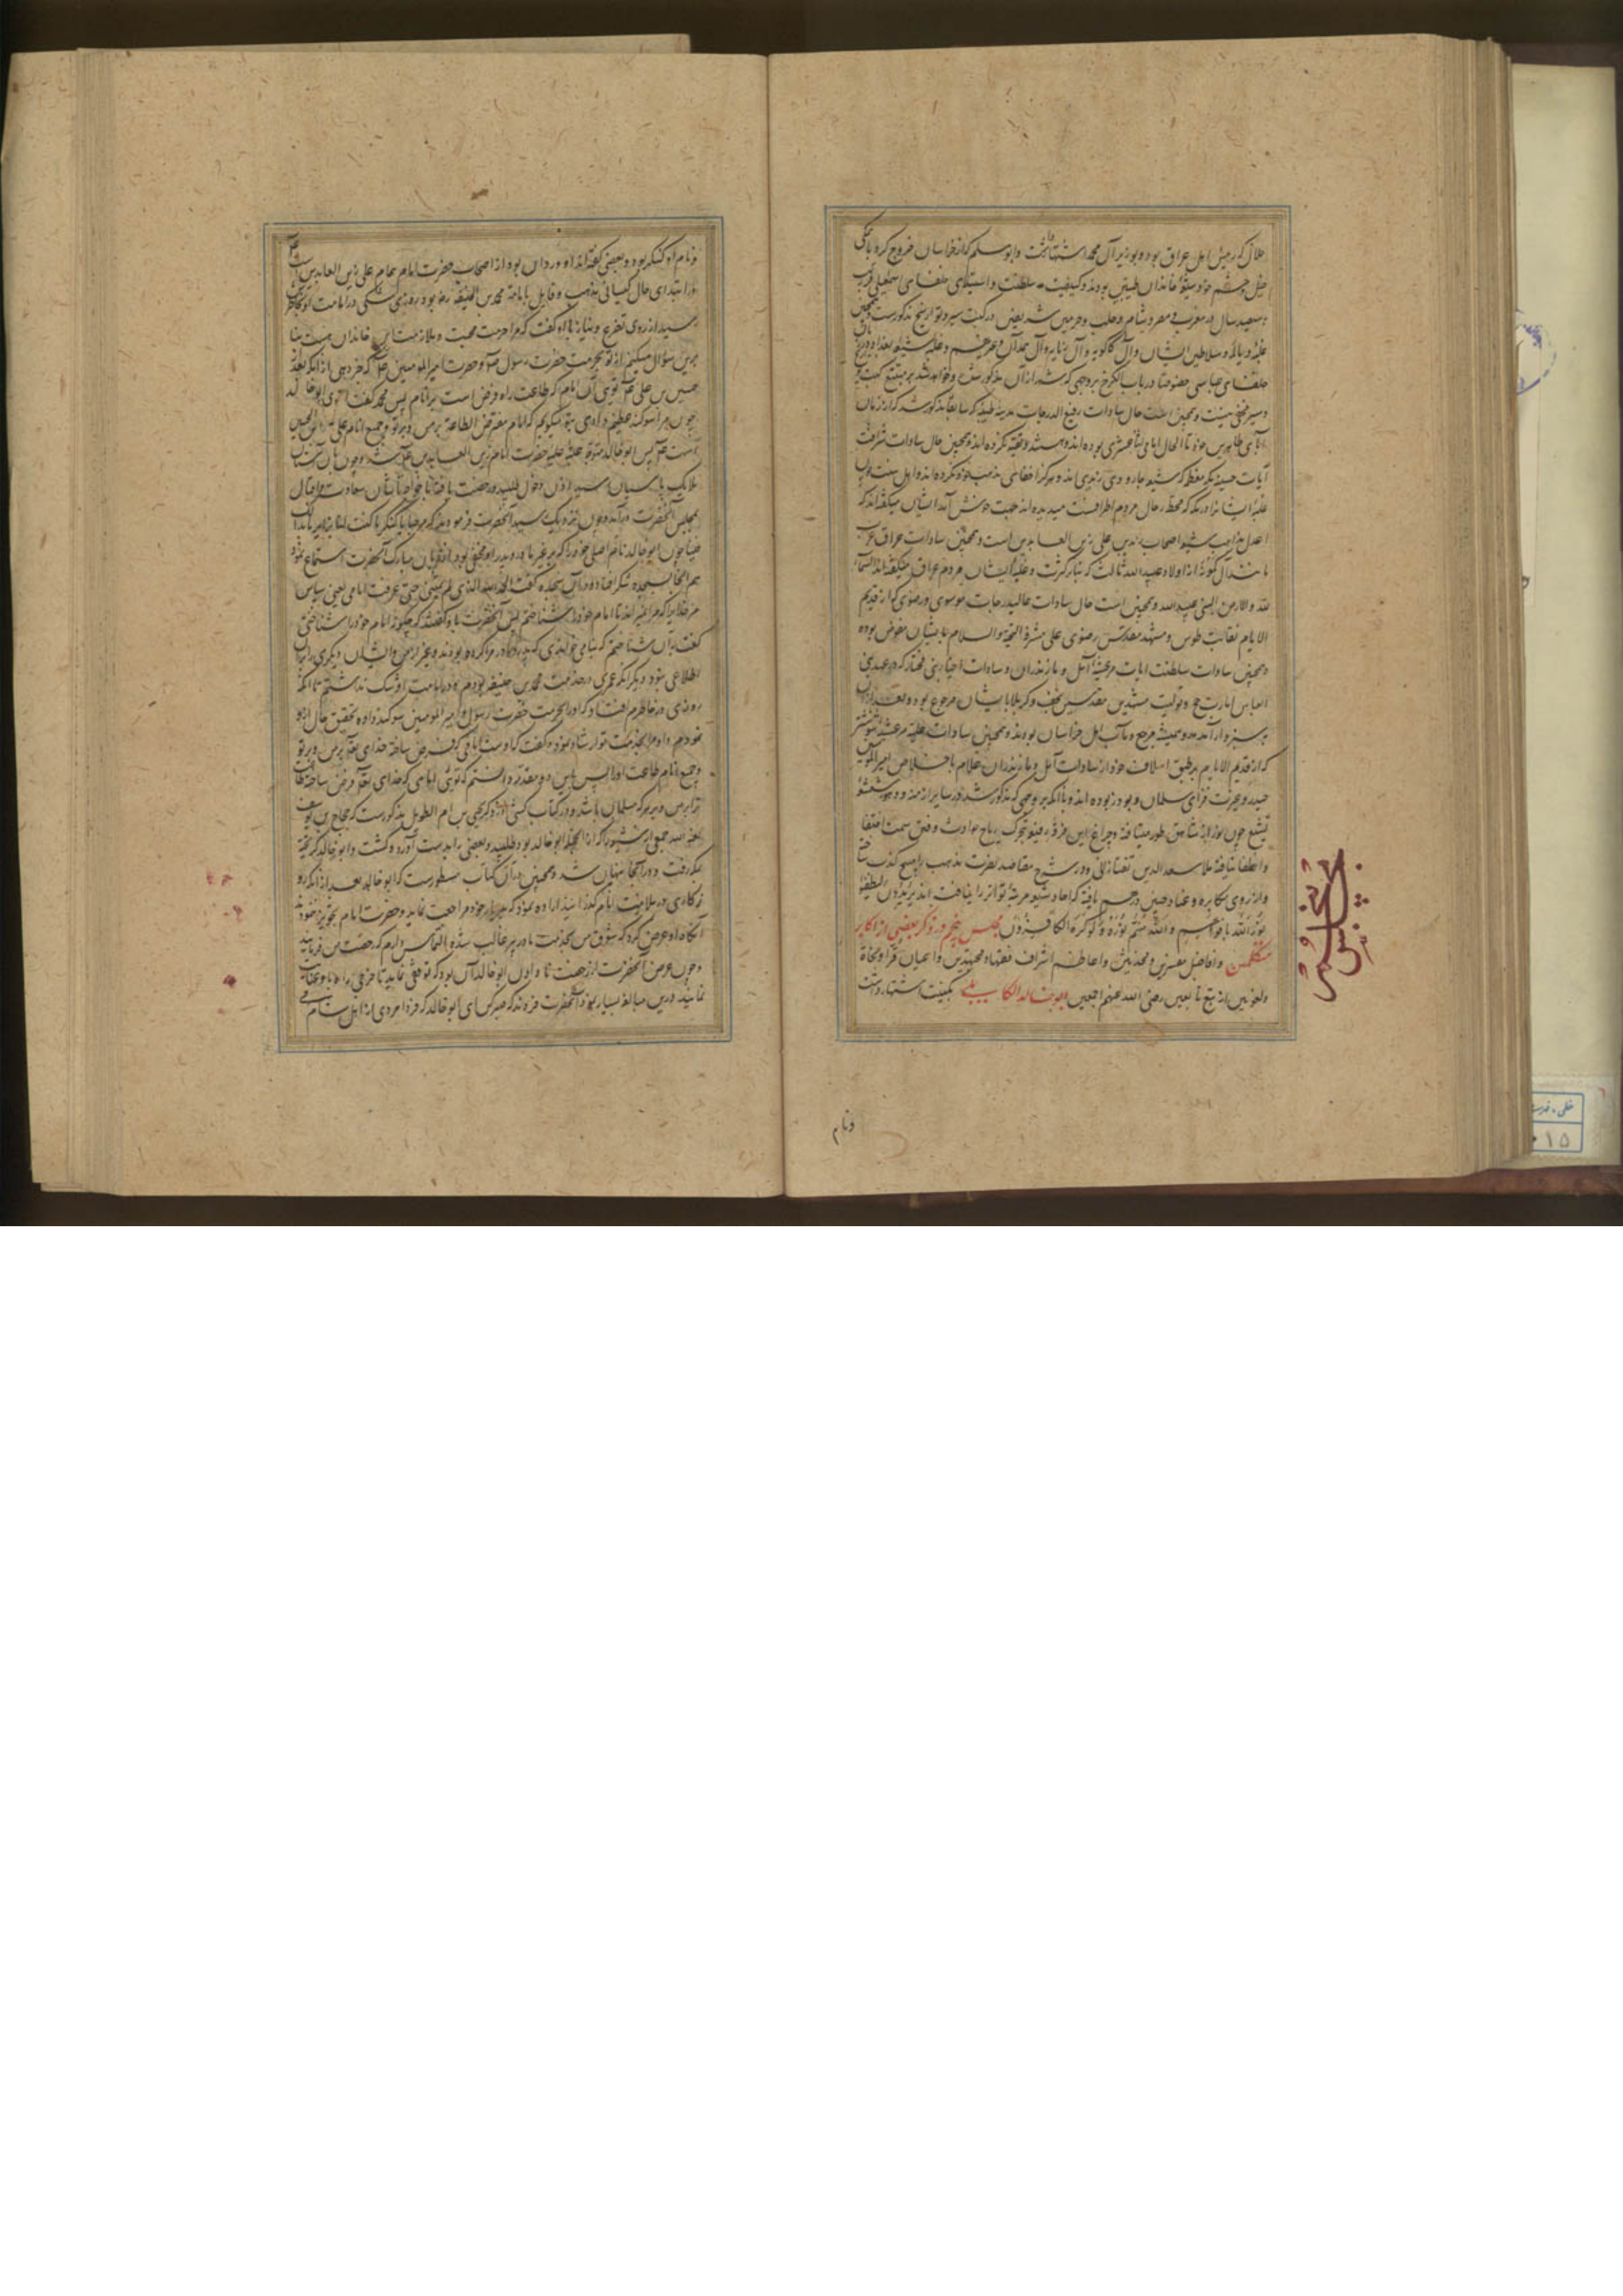 خلال که رئیس اهل عراق بود و بوزیر آل محمد اشتهار داشت و ابومسلم که از خراسان خروج کرد با جمیع
خیل و حشم خود شیعهٔ خاندان طیبین بودند و کیفیت سلطنت و استیلای خلفای اسمعیلی قریب
سیصد سال در مغرب و مصر و شام و حلب و حرمین شریفین در کتب سیر و تواریخ مذکورست همچنین
غلبهٔ دیالمه و سلاطین ایشان و آل کاکویه و آل و آل حمدان و غیرهم و غلبه شیعه بغداد در زمان
خلفای عباسی خصوصا در باب الکرخ بروجهی که شمه‌ای از آن مذکور شد و خواهد شد بر متتبع کتب
و سیر مخفی نیست و همچنین است حال سادات رفیع الدرجات مدینه طیبه که سابقا مذکور شد که از زمان
آبای طاهرین خود تا الحال امامی اثنا عشری بوده‌اند و هستند و تقیه نکرده‌اند و همچنین حال سادات شرافت
آیات حسینیه مکه معظمه که شیعه جارودی زیدی‌اند و هرگز اخفای مذهب خود نکرده‌اند و اهل سنت چون
غلبهٔ ایشانرا در مکه که محط رحال مردم اطرافست میدیده‌اند جهت خوش آمد ایشان میگفته‌اند که
اعدل مذاهب شیعه اصحاب زید بن علی زین العابدین است و همچنین سادات عراق عرب
مانند آل کمونه از اولاد عبید الله ثالث که بنابر کثرت و غلبهٔ ایشان مردم عراق میگفته‌اند السماء
لله و الارض لبنی عبید الله و همچنین است حال سادات عالیدرجات موسوی و رضوی که از قدیم
الایام نقابت طوس و مشهد مقدس رضوی علی مشرفه التحیة و السلام بایشان مفوض بوده
و همچنین سادات سلطنت آیات مرعشیه آمل و مازندران و سادات اخیار بنی مختار که در عهد بنی
العباس امارت حج و تولیت مشهدین مقدسین نجف و کربلا بایشان مرجوع بوده و بعد از آن
بسبزوار آمدند و همیشه مرجع و مآب اهل خراسان بودند و همچنین سادات علیه مرعشیه شوشتر
که از قدیم الایام بر طبق اسلاف خود از سادات آمل و مازندران غلام باخلاص امیر المؤمنین
حیدر و بوذر بوده‌اند و با آنکه بروجهی که مذکور شد در سایر ازمنه و دهور شعشعهٔ
تشیع چون نور از شاهق طور میتافته و چراغ این فرقه رفیعه بتحریک ریاح حوادث و فتن سمت انتفا
و انطفا نیافته ملا سعد الدین تفتازانی در شرح مقاصد نصرت مذهب را صبح کذب ساخته
و از روی مکابره و عناد چنین یافته که احاد شیعه مرتبهٔ تواتر را نیافته‌اند یُرِیدُونَ لِیُطْفِئُوا
نُورَ اللَّهِ بِأَفْوَاهِهِمْ وَاللَّهُ مُتِمُّ نُورِهِ وَلَوْ كَرِهَ الْكَافِرُونَ مجلس پنجم در ذکر بعضی از اکابر
متکلمین و افاضل مفسرین و محدثین و اعاظم اشراف فقها و مجتهدین و اعیان قراء و نحاة
و لغویین از تبع تابعین رضی الله عنهم اجمعین ابو خالد الکابلی بکنیت اشتهار داشت
مجلس پنجم
و نام
و نام او کنکر بود و بعضی گفته‌اند او وردان بود از اصحاب حضرت امام همام علی زین العابدین است
در ابتدای حال کیسانی مذهب و قایل بامامت محمد بن الحنیفه رضی بود روزی شکی در امامت او بخاطرش
رسید از روی تضرع و نیاز با او گفت که مرا حرمت محبت و ملازمت این خاندان هست بنا
برین سؤال میکنم از تو بحرمت حضرت رسول و حضرت امیر المؤمنین که خبر دهی از آنکه بعد از
حسین بن علی تویی آن امام که طاعت او فرض است بر انام پس محمد گفت ای ابو خالد
چون مرا سوگند عظیم دادی بتو میگویم که امام مفترض الطاعة بر من و بر تو و جمیع انام علی بن الحسین
است پس ابو خالد متوجه عتبه علیه حضرت امام زین العابدین شد و چون بآن آستان
ملایک پاسبان رسید اذن دخول طلبید و رخصت یافته سعادت و اقبال
بمجلس آنحضرت درآمد و چون نزدیک رسید آنحضرت فرمودند که مرحبا یا کنکر ما کنت لنا بزایر ما بدا
فینا چون ابو خالد نام اصلی خود را که بر غیر مادر و پدر او مخفی بود از زبان مبارک آنحضرت استماع نمود
هم آنجا بسجده شکر افتاد و در آن سجده گفت الحمد لله الذی لم یمتنی حتی عرفت امامی یعنی سپاس
مر خدایرا که مرا نمیراند تا امام خود را شناختم پس آنحضرت باو گفتند که چگونه امام خود را شناختی
گفت بآن شناختم که بنامی خواندی که پدر و مادر مرا کرده بودند و بغیر از من و ایشان دیگری را بر آن
اطلاعی نبود و دیگر آنکه عمری در خدمت محمد بن حنیفه بودم و در امامت او شک نداشتم تا آنکه
روزی در خاطرم افتاد که او را بحرمت حضرت رسول و امیر المؤمنین سوگند داده تحقیق حال از او
نمودم و او مرا بخدمت تو ارشاد نمود و گفت که اوست امامی که فرض ساخته خدای تعالی بر من و بر تو
و جمیع انام طاعت او را پس باین دو مقدمه دانستم که تویی امامی که خدای تعالی فرض ساخته طاعت
ترا بر من و بر هر که مسلمان باشد و در کتاب کشی در ذکر یحیی بن ام الطویل مذکورست که حجاج بن یوسف
لعنه الله جمعی از شیعه را که از آنجمله ابو خالد بود طلبید و بعضی را بدست آورد و کشت و ابو خالد گریخته
بمکه رفت و در آنجا پنهان شد و همچنین در آن کتاب مسطورست که ابو خالد بعد از آنکه روزگاری
در ملازمت امام گذرانید اراده نمود که بدیار خود مراجعت نماید و حضرت امام بتجویز ننمودند
آنگاه او عرض کرد که شوق من بخدمت مادر پیر غالب شده التماس دارم که رخصت من فرمایند
و چون غرض آنحضرت از رخصت نادادن ابو خالد آن بود که توقفی نماید تا خرجی راه باو عنایت
نمایند و درین مبالغه بسیار نمود آنحضرت فرمودند که صبر کن ای ابو خالد که فردا مردی از اهل شام می
خطی، فهرست
۰۱۵